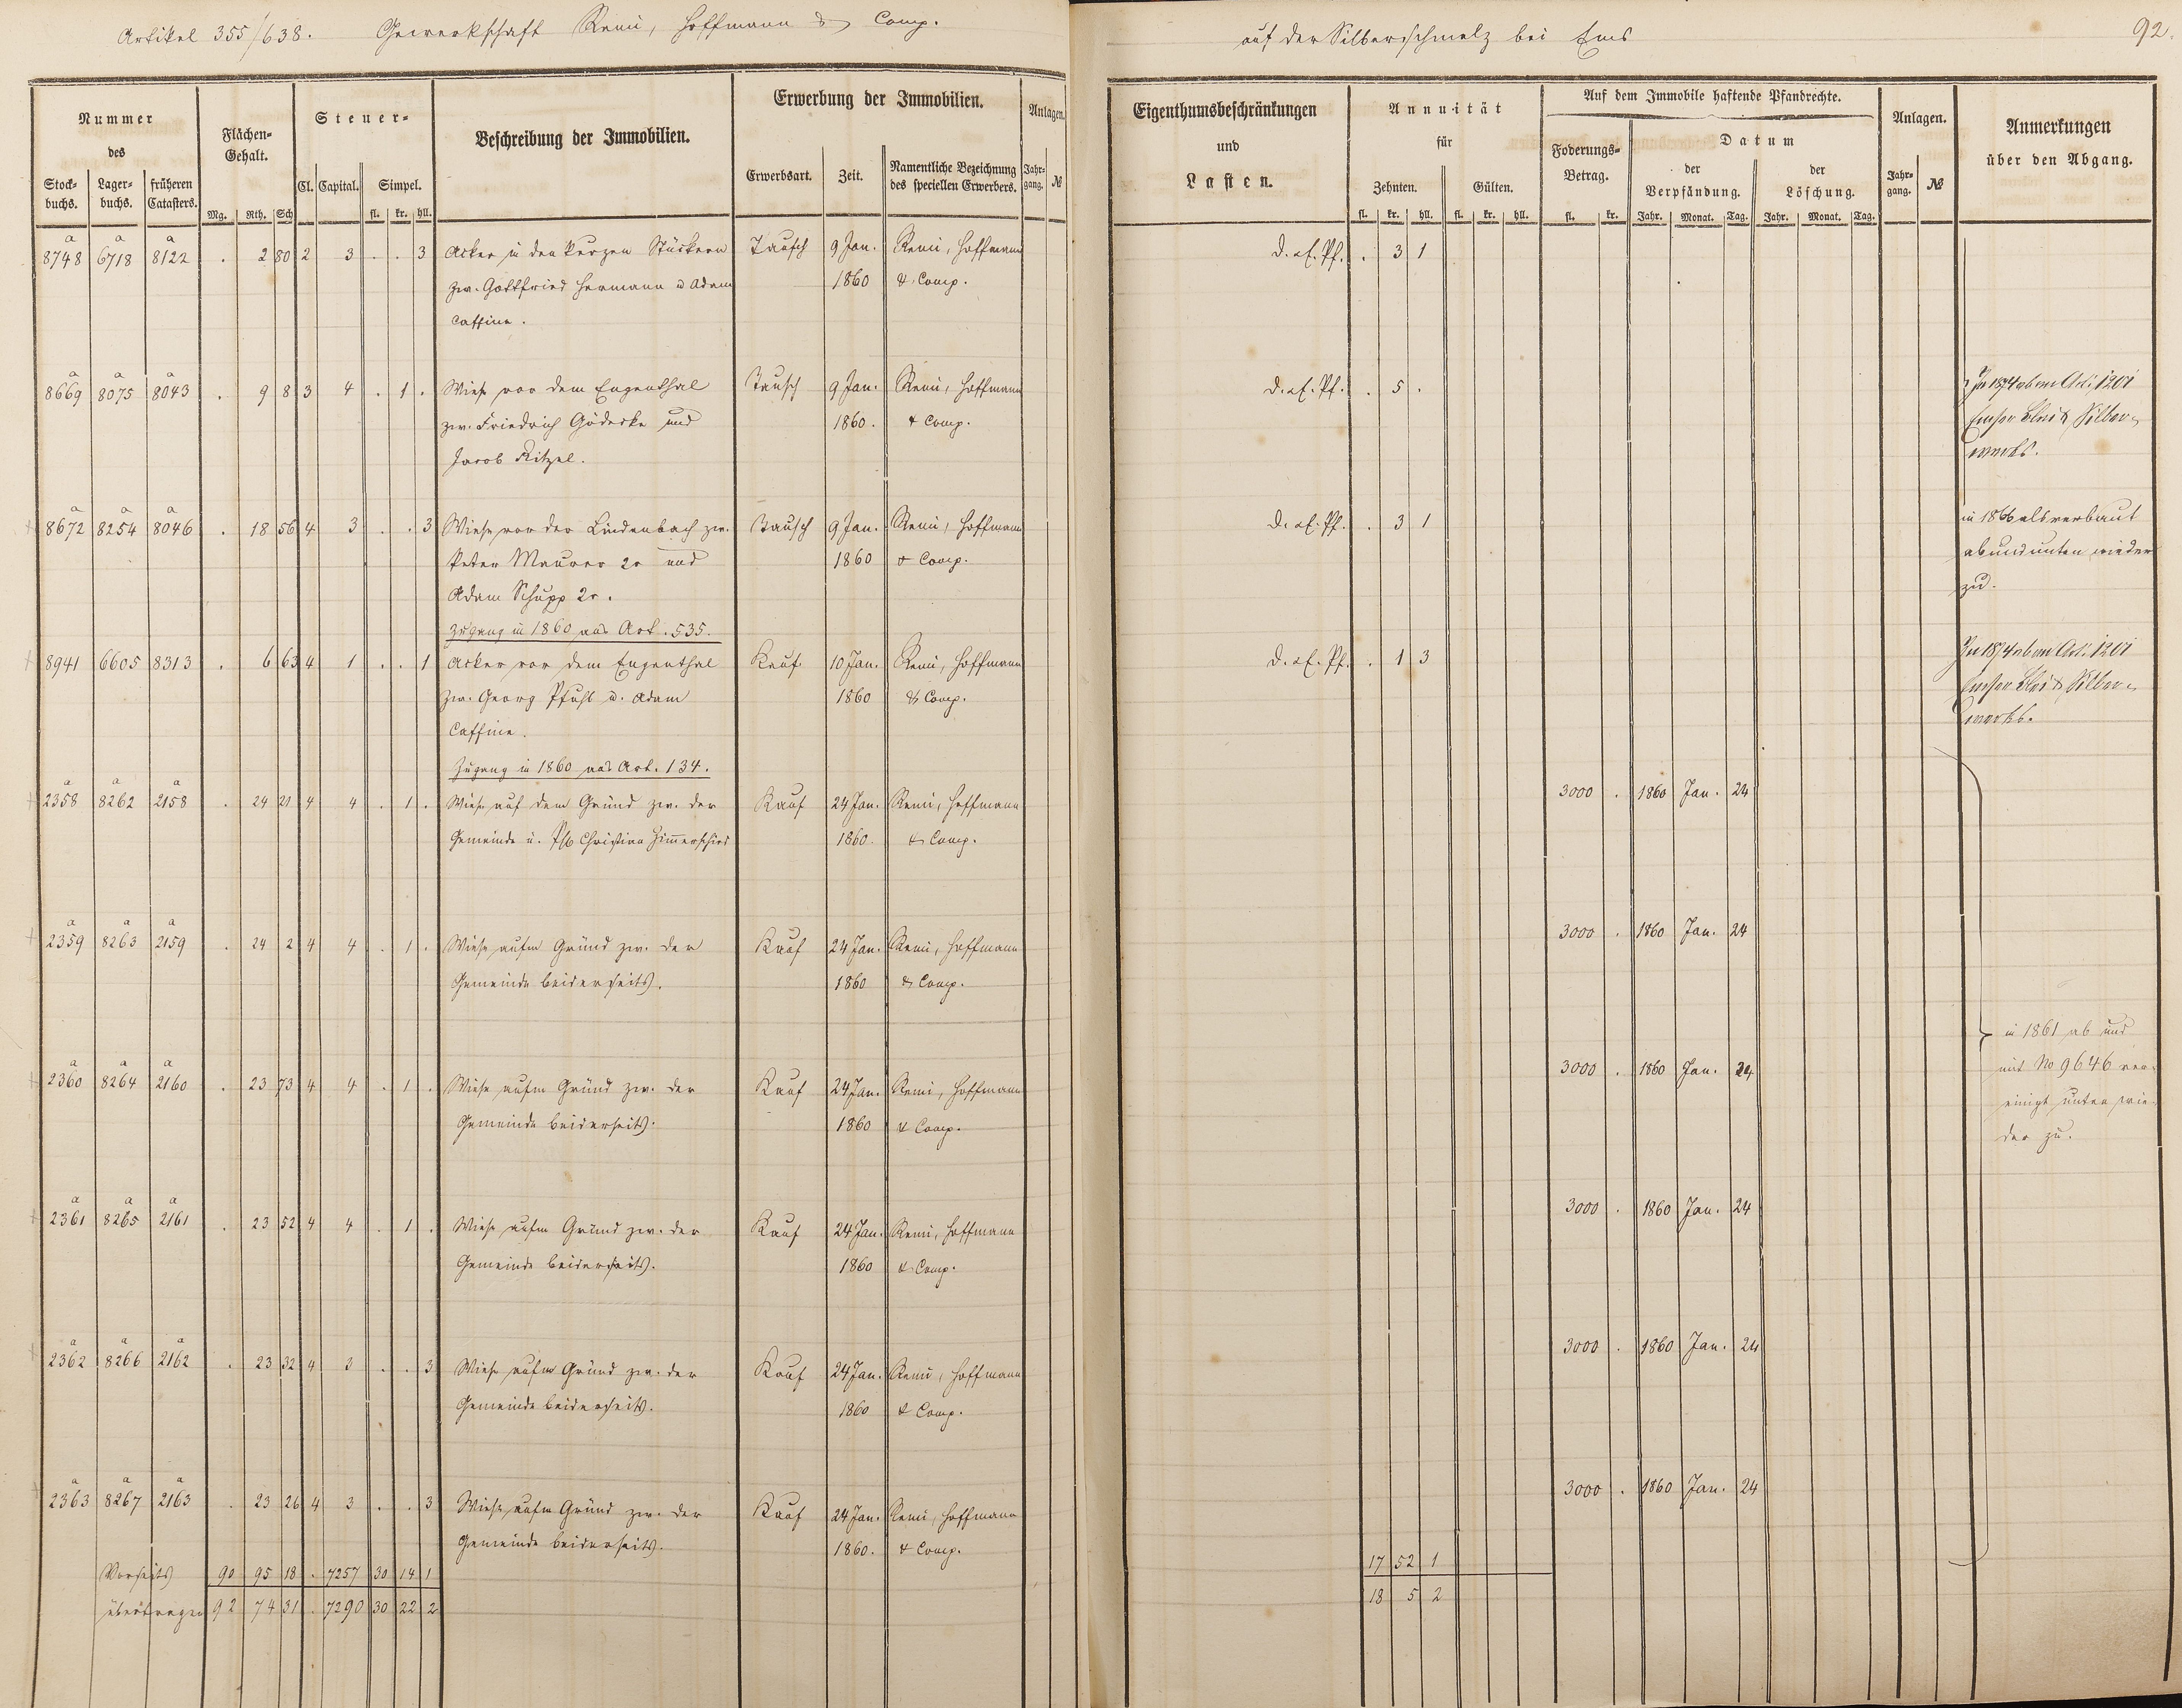 Artikel 355/638. Gewerkschaft Remi, Hoffmann & Comp.
auf der Silberschmelz bei Ems
92.
Nummer des
Stockbuchs. Lagerbuchs. früheren Catasters.
Flächen-Gehalt.
Mg. Rth. Sch
Steuer-
Cl. Capital. Simpel.
fl. kr. hll.
Beschreibung der Immobilien.
Erwerbung der Immobilien.
Erwerbsart. Zeit. Namentliche Bezeichnung des speciellen Erwerbers.
Anlagen.
Jahrgang. №
Eigenthumsbeschränkungen und Lasten.
Annuität für
Zehnten. Gülten.
fl. kr. hll. fl. kr. hll.
Auf dem Immobile haftende Pfandrechte.
Foderungs-Betrag.
fl. kr.
Datum
der Verpfändung. der Löschung.
Jahr. Monat. Tag. Jahr. Monat. Tag.
Anlagen.
Jahrgang. №
Anmerkungen über den Abgang.
a a a
8748 6718 8122 . 2 80 2 3 . . 3 Acker in den kurzen Stückern Tausch 9 Jan. Remi, Hoffmann d. z. Pf. . 3 1
zw. Gottfried Hermann u Adam 1860 & Comp.
Caffine.
a a a
8669 8075 8043 . 9 8 3 4 . 1 . Wiese vor dem Eugenthal Tausch 9 Jan. Remi, Hoffmann d. z. Pf. . 5 . In 1874 ab an Art. 1201
zw. Friedrich Gödecke und 1860. & Comp. Emser Blei & Silber-
Jacob Kitzel. werks.
a a a
8672 8254 8046 . 18 56 4 3 . . 3 Wiese vor der Lindenbach zw. Tausch 9 Jan. Remi, Hoffmann d. z. Pf. . 3 1 in 1866 als verbaut
Peter Maurer 2r und 1860 & Comp. ab und unten wieder
Adam Schupp 2r. zu.
Zugang in 1860 aus Art. 535.
8941 6605 8313 . 6 63 4 1 . . 1 Acker vor dem Eugenthal Kauf 10 Jan. Remi, Hoffmann d. z. Pf. . 1 3 In 1874 ab an Art. 1201
zw. Georg Pfuhl u. Adam 1860 & Comp. Emser Blei & Silber-
Caffine. werks.
Zugang in 1860 aus Art. 134.
a a a
2358 8262 2158 . 24 21 4 4 . 1 . Wiese auf dem Gründ zw. der Kauf 24 Jan. Remi, Hoffmann 3000 . 1860 Jan. 24
Gemeinde u. Christina Zimmerschied 1860. & Comp.
a a a
2359 8263 2159 . 24 2 4 4 . 1 . Wiese aufm Gründ zw. der Kauf 24 Jan. Remi, Hoffmann 3000 . 1860 Jan. 24
Gemeinde beiderseits. 1860 & Comp.
a a a
2360 8264 2160 . 23 73 4 4 . 1 . Wiese aufm Gründ zw. der Kauf 24 Jan. Remi, Hoffmann 3000 . 1860 Jan. 24
Gemeinde beiderseits. 1860 & Comp.
in 1861 ab und
mit No 9646 ver-
einigt unten wie-
der zu.
a a a
2361 8265 2161 . 23 52 4 4 . 1 . Wiese aufm Gründ zw. der Kauf 24 Jan. Remi, Hoffmann 3000 . 1860 Jan. 24
Gemeinde beiderseits. 1860 & Comp.
a a a
2362 8266 2162 . 23 32 4 3 . . 3 Wiese aufm Gründ zw. der Kauf 24 Jan. Remi, Hoffmann 3000 . 1860 Jan. 24
Gemeinde beiderseits. 1860 & Comp.
a a a
2363 8267 2163 . 23 26 4 3 . . 3 Wiese aufm Gründ zw. der Kauf 24 Jan. Remi, Hoffmann 3000 . 1860 Jan. 24
Gemeinde beiderseits. 1860. & Comp.
Vorseits 90 95 18 . 7257 30 14 1 17 52 1
übertragen 92 74 31 . 7290 30 22 2 18 5 2